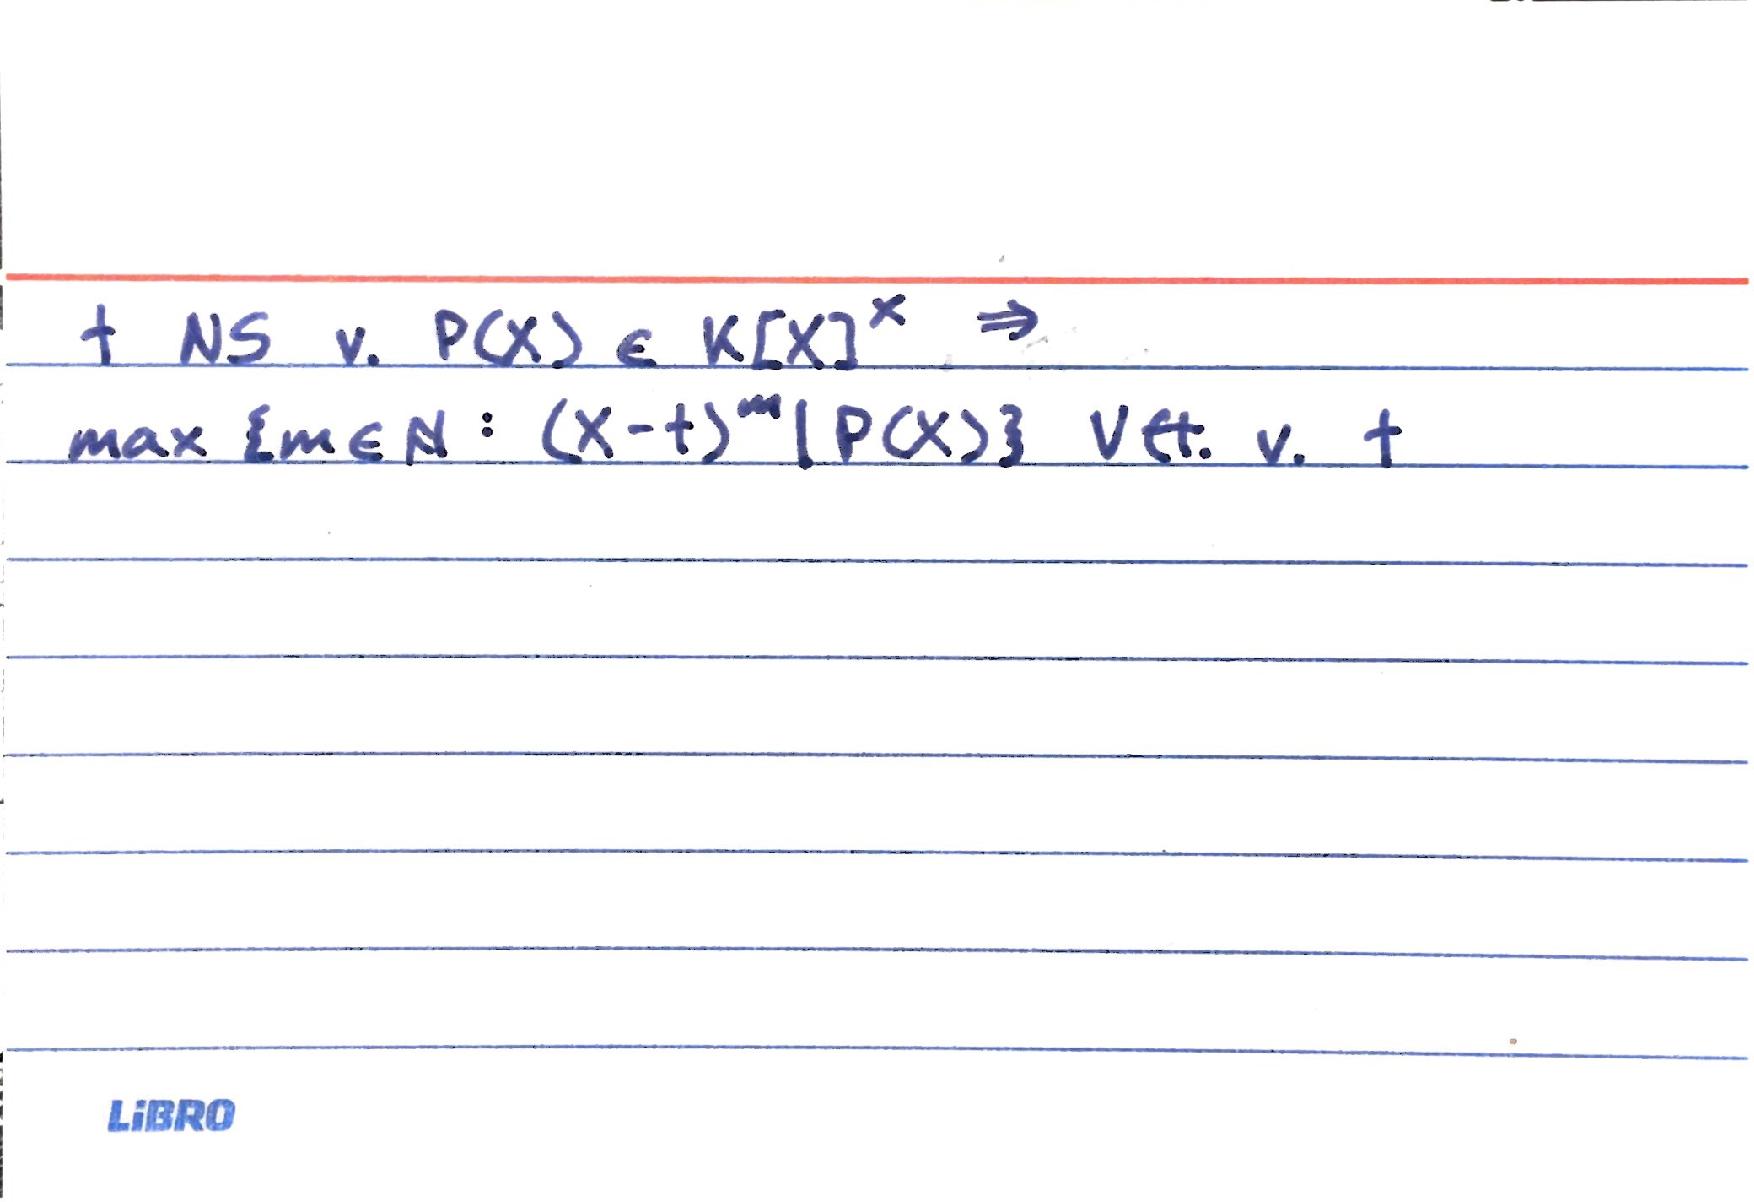 t NS v. P(X) ∈ K[X]^× ⇒
max {m ∈ N : (X-t)^m | P(X)} Vft. v. t
LiBRO